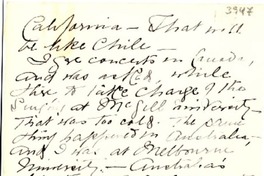 3947
California — That will
be like Chile —
I gave concerts in Canada,
and was asked, while
there to take charge of the
at McGill University —
That was too cold. The same
thing happened in Australia,
and I was at Melbourne
University — Australia's